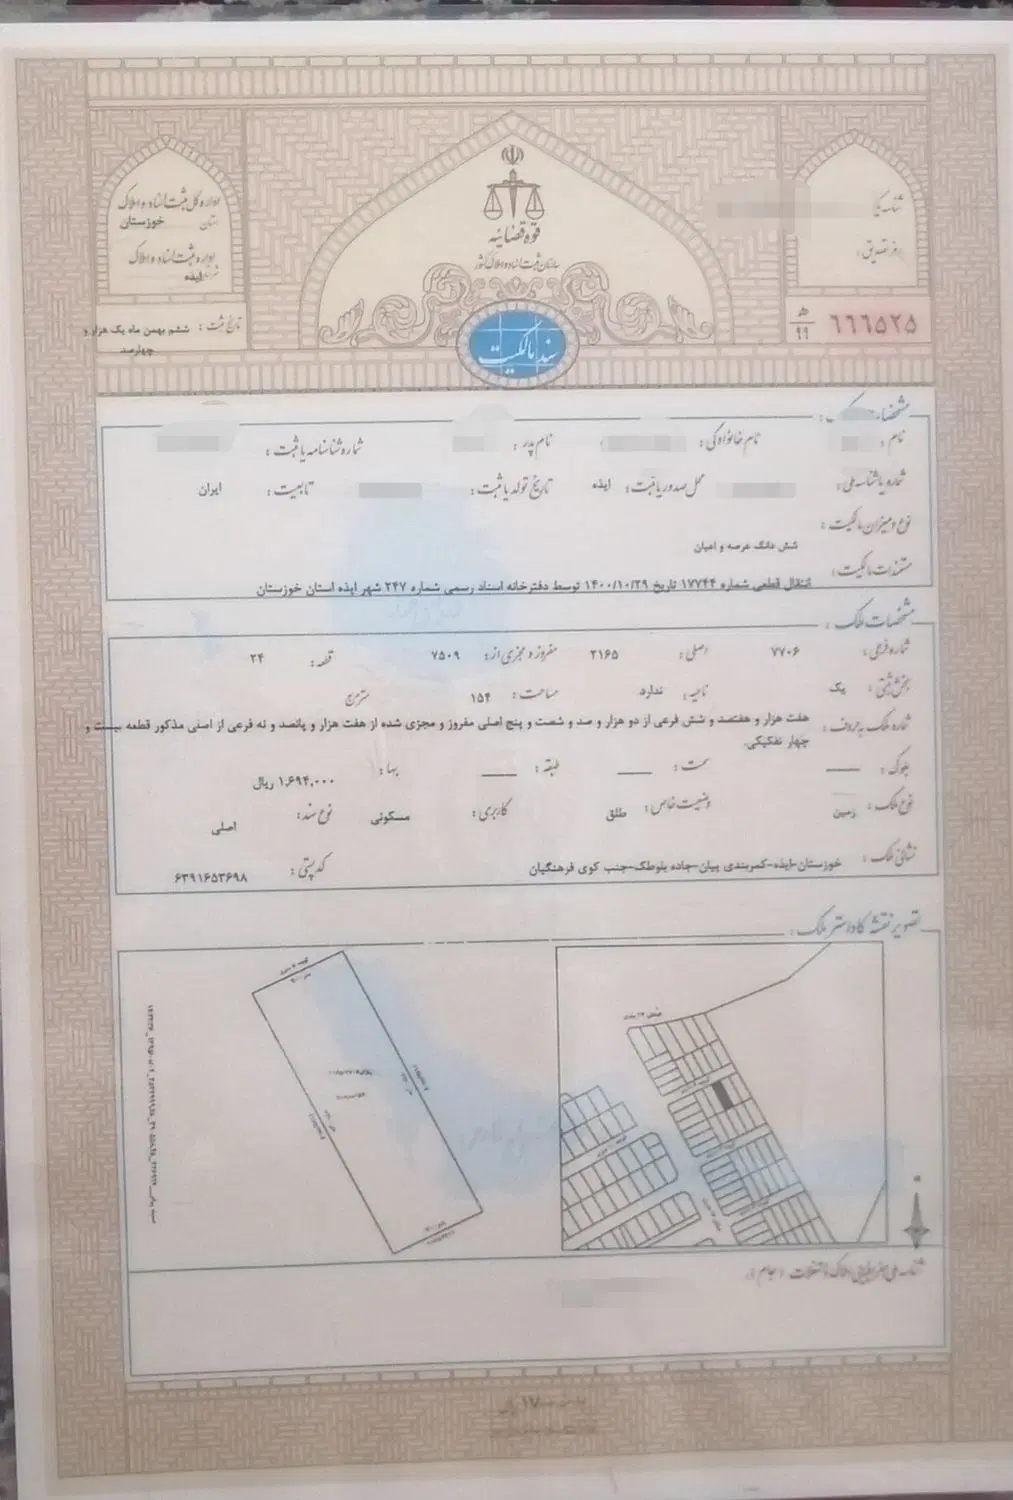 اداره کل ثبت اسناد و املاک
استان خوزستان
اداره ثبت اسناد و املاک
شهرستان ایذه
تاریخ ثبت : ششم بهمن ماه یک هزار و
چهارصد
قوه قضائیه
سازمان ثبت اسناد و املاک کشور
سند مالکیت
شناسه یکتا
رمز تصدیق :
۶۶۶۵۲۵ ه‍/۹۹
مشخصات مالک :
نام : نام خانوادگی : نام پدر : شماره شناسنامه یا ثبت :
شماره یا شناسه ملی : محل صدور یا ثبت : ایذه تاریخ تولد یا ثبت : تابعیت : ایران
نوع و میزان مالکیت :
شش دانگ عرصه و اعیان
مستندات مالکیت :
انتقال قطعی شماره ۱۷۷۴۴ تاریخ ۱۴۰۰/۱۰/۲۹ توسط دفترخانه اسناد رسمی شماره ۲۴۷ شهر ایذه استان خوزستان
مشخصات ملک :
شماره فرعی : ۷۷۰۶ اصلی : ۲۱۶۵ مفروز و مجزی از : ۷۵۰۹ قطعه : ۲۴
بخش ثبتی : یک ناحیه : ندارد مساحت : ۱۵۴ مترمربع
شماره ملک به حروف : هفت هزار و هفتصد و شش فرعی از دو هزار و صد و شصت و پنج اصلی مفروز و مجزی شده از هفت هزار و پانصد و نه فرعی از اصلی مذکور قطعه بیست و
چهار تفکیکی.
بلوک : ــــ سمت : ــــ طبقه : ــــ بها : ۱,۶۹۴,۰۰۰ ریال
نوع ملک : زمین وضعیت خاص : طلق کاربری : مسکونی نوع سند : اصلی
نشانی ملک : خوزستان-ایذه-کمربندی پیان-جاده بلوطک-جنب کوی فرهنگیان کد پستی : ۶۳۹۱۶۵۳۶۹۸
تصویر نقشه کاداستر ملک :